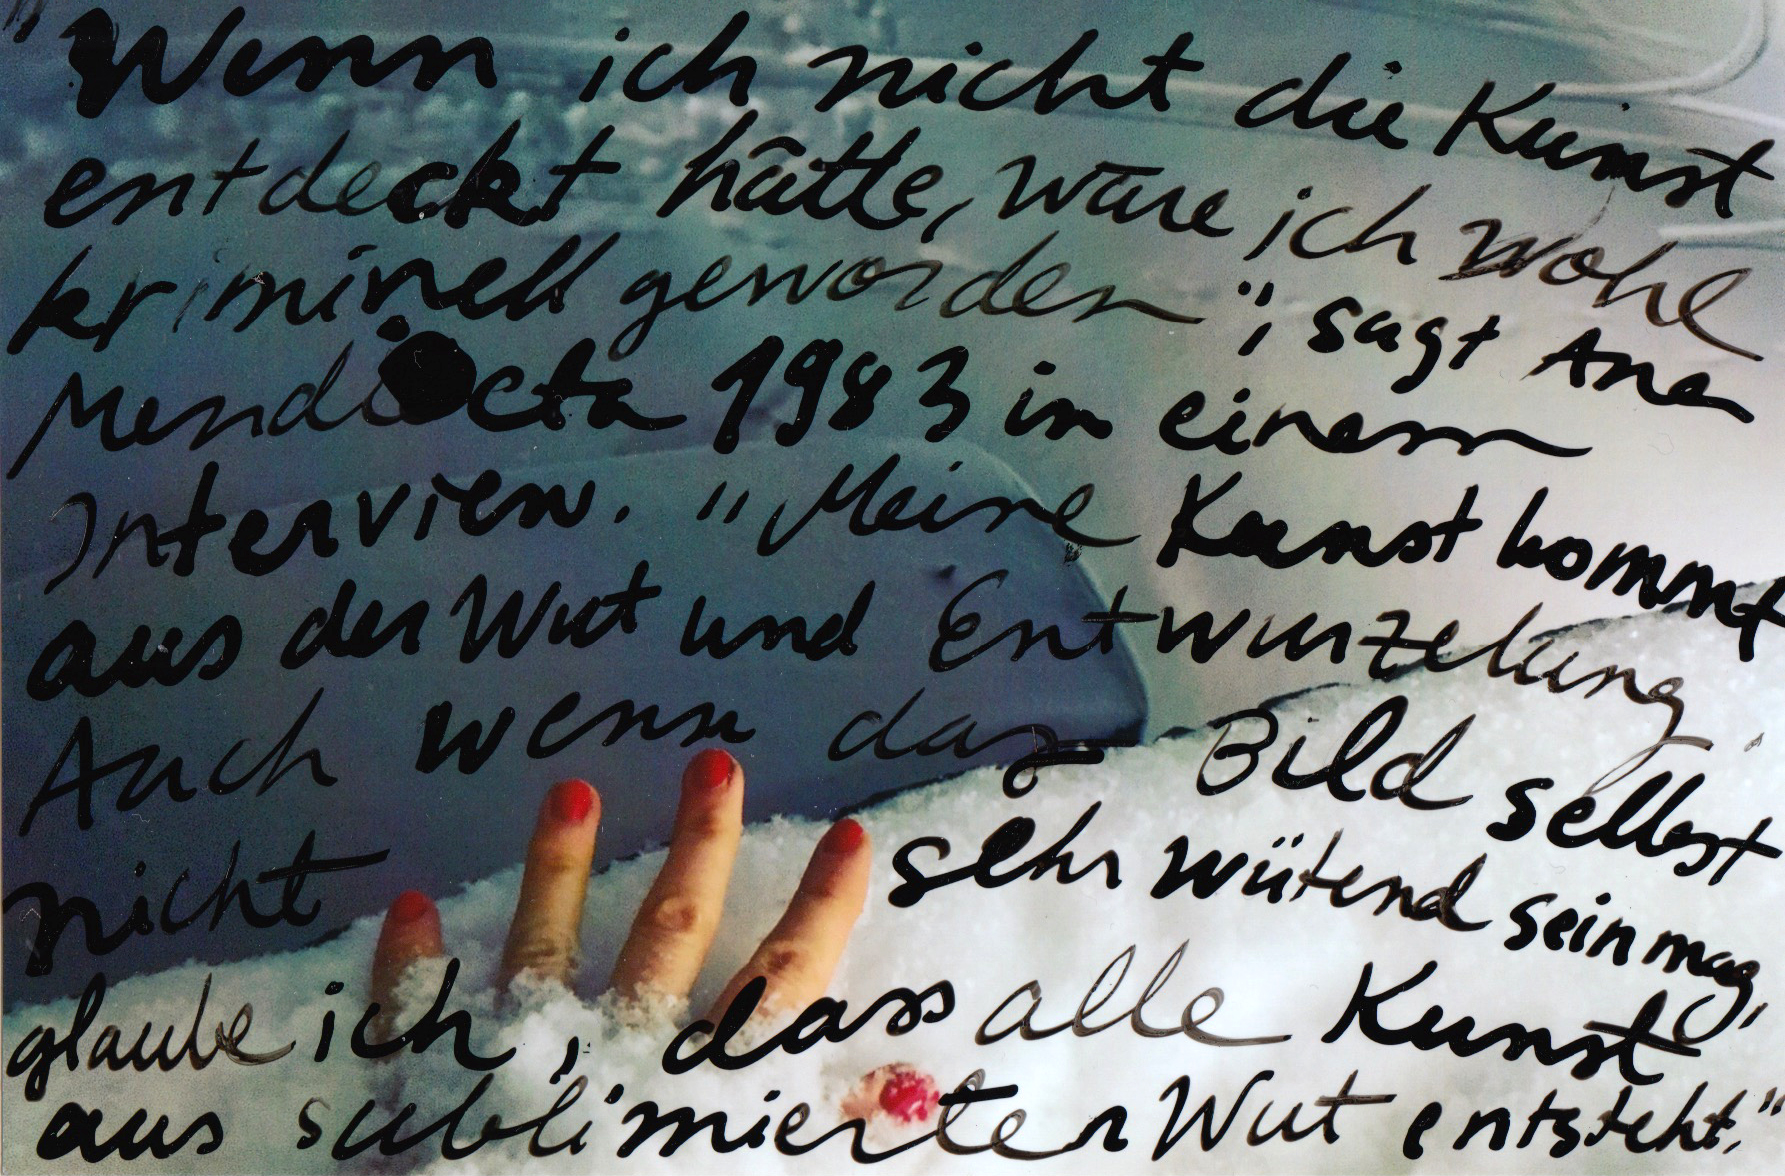 "Wenn ich nicht die Kunst
entdeckt hätte, wäre ich wohl
kriminell geworden", sagt Ana
Mendicta 1983 in einem
Interview. "Meine Kunst kommt
aus der Wut und Entwurzelung.
Auch wenn das Bild selbst
nicht sehr wütend sein mag,
glaube ich, dass alle Kunst
aus sublimierter Wut entsteht."